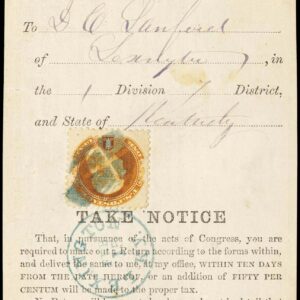 To D C Sanford
of Lexington, in
the 1 Division 7 District,
and State of Kentucky
1
TAKE NOTICE
That, in pursuance of the acts of Congress, you are
required to make out a Return according to the forms within,
and deliver the same to me, at my office, WITHIN TEN DAYS
FROM THE DATE HEREOF, or an addition of FIFTY PER
CENTUM will be made to the proper tax.